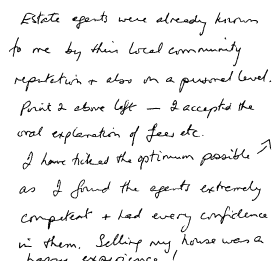 Estate agents were already known
to me by their local community
reputation + also on a personal level.
Point 2 above left — I accepted the
oral explanation of fees etc.
I have ticked the optimum possible ↗
as I found the agents extremely
competent + had every confidence
in them. Selling my house was a
happy experience!